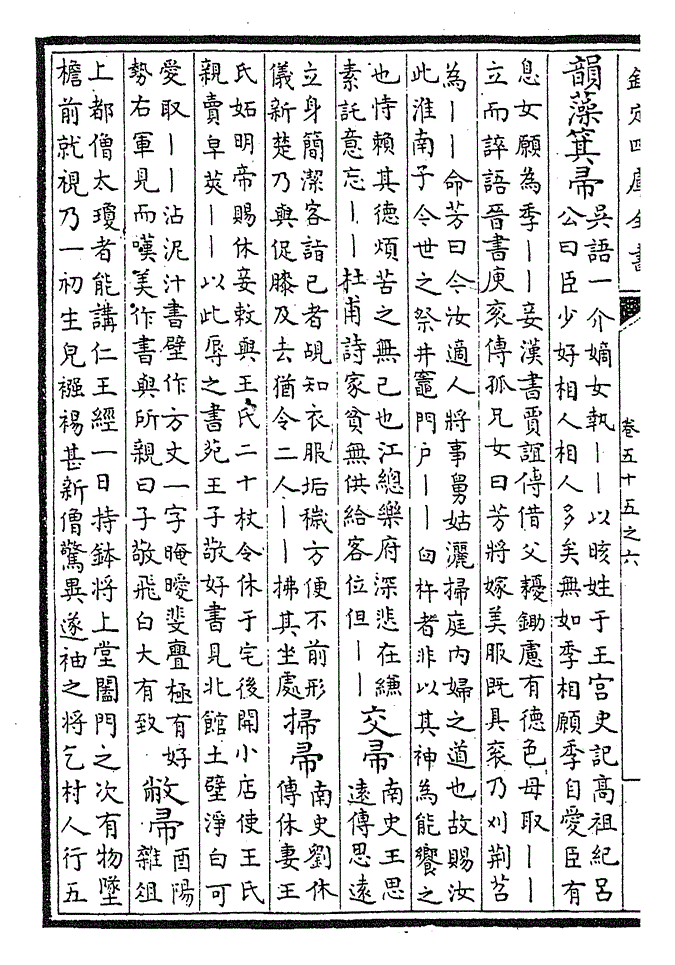 欽定四庫全書 卷五十五之六
韻藻箕帚
吳語一介嫡女執丨丨以晐姓于王宮史記高祖紀呂
公曰臣少好相人相人多矣無如季相願季自愛臣有
息女願為季丨丨妾漢書賈誼傳借父耰鋤慮有德色母取丨丨
立而誶語晉書庾袞傳孤兄女曰芳將嫁美服既具袞乃刈荊苕
為丨丨命芳曰今汝適人將事舅姑灑掃庭內婦之道也故賜汝
此淮南子今世之祭井竈門户丨丨臼杵者非以其神為能饗之
也恃賴其德煩苦之無已也江總樂府深悲在縑
素託意忘丨丨杜甫詩家貧無供給客位但丨丨
交帚
南史王思
遠傳思遠
立身簡潔客詣己者覘知衣服垢穢方便不前形
儀新楚乃與促膝及去猶令二人丨丨拂其坐處
掃帚
南史劉休
傳休妻王
氏妬明帝賜休妾敕與王氏二十杖令休于宅後開小店使王氏
親賣皁莢丨丨以此辱之書苑王子敬好書見北館土壁淨白可
愛取丨丨沾泥汁書壁作方丈一字晻曖斐亹極有好
勢右軍見而嘆美作書與所親曰子敬飛白大有致
敝帚
酉陽
雜俎
上都僧太瓊者能講仁王經一日持鉢將上堂闔門之次有物墜
檐前就視乃一初生兒襁褓甚新僧驚異遂袖之將乞村人行五